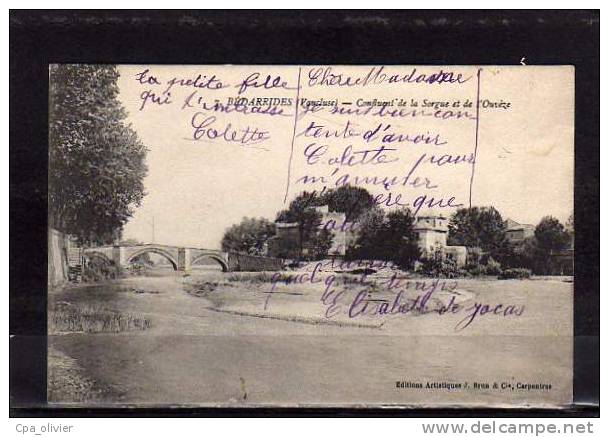 la petite fille
qui t'embrasse
Colette
Chère Madame
je suis bien con
tente d'avoir
Colette pour
m'amuser
que
quelque temps
Elisabeth de
BÉDARRIDES (Vaucluse) — Confluent de la Sorgue et de l'Ouvèze
Editions Artistiques J. Brun & Cie, Carpentras
Cpa_olivier
www.delcampe.net